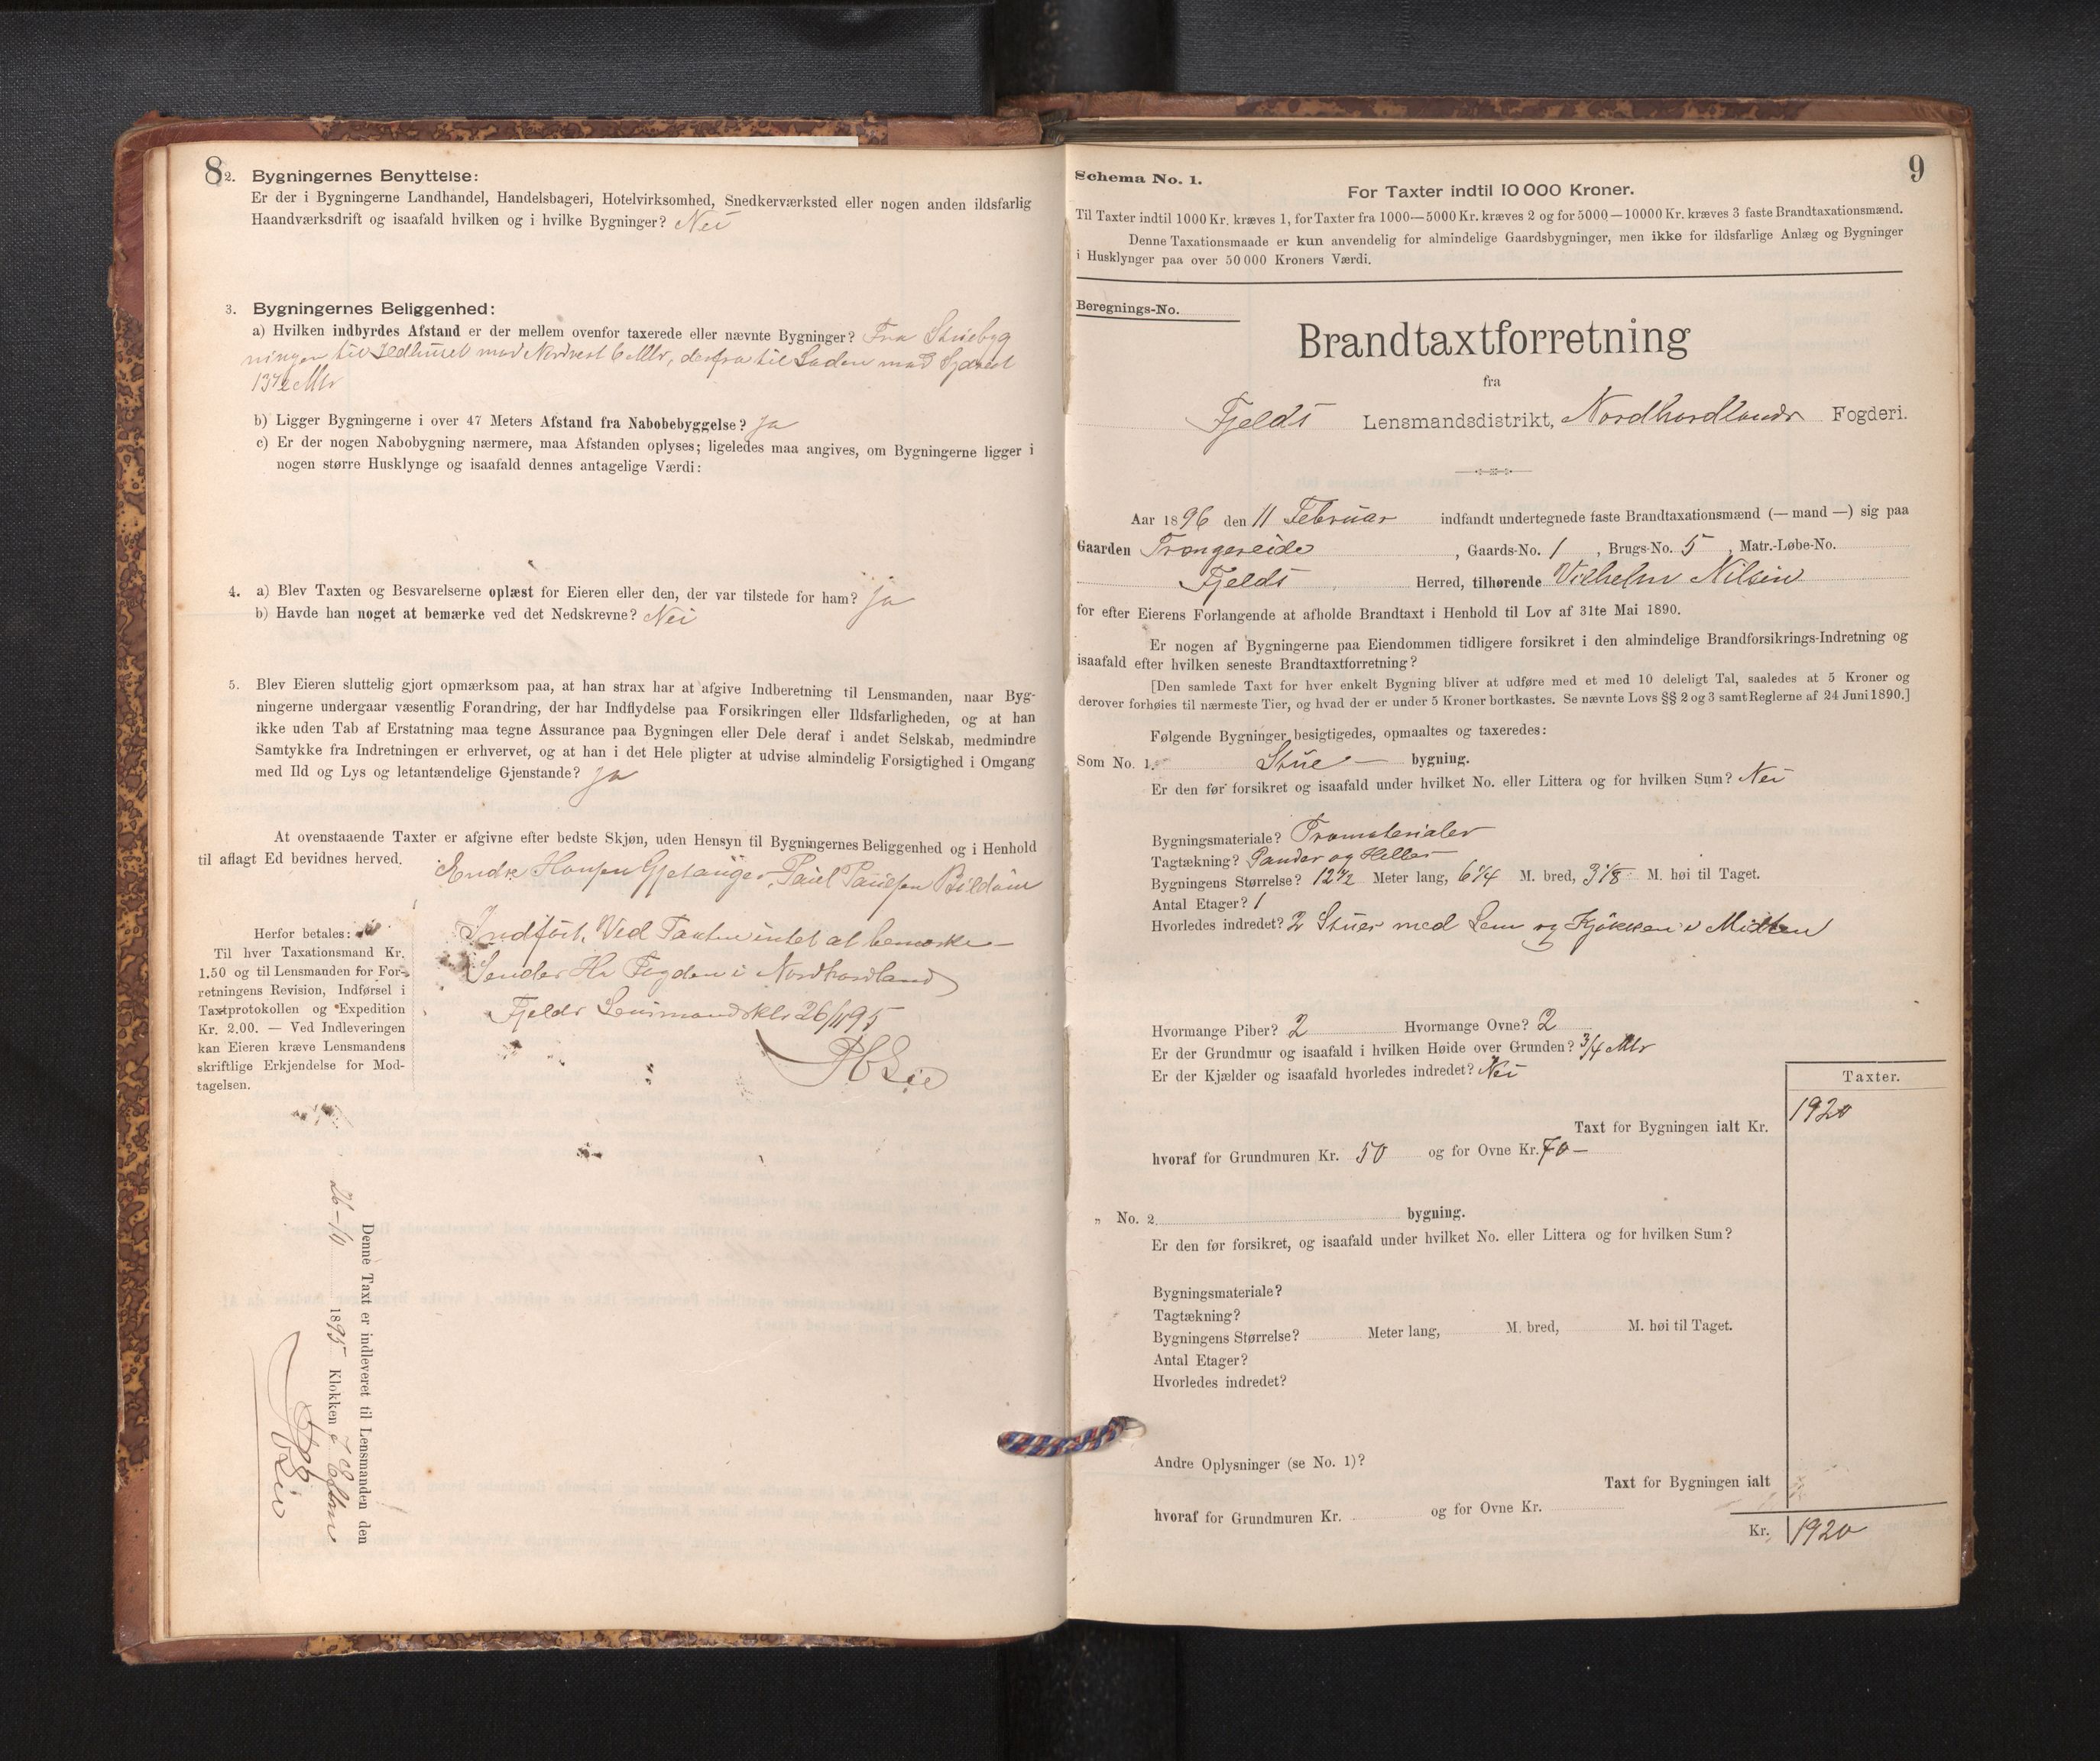 8
2. Bygningernes Benyttelse:
Er der i Bygningerne Landhandel, Handelsbageri, Hotelvirksomhed, Snedkerværksted eller nogen anden ildsfarlig
Haandværksdrift og isaafald hvilken og i hvilke Bygninger? Nei
3. Bygningernes Beliggenhed:
a) Hvilken indbyrdes Afstand er der mellem ovenfor taxerede eller nævnte Bygninger? Fra Stuebyg
ningen til Ildhuset mod Nordvest 6 Mtr, derfra til Laden mod Sydvest
13 1/2 Mtr
b) Ligger Bygningerne i over 47 Meters Afstand fra Nabobebyggelse? Ja
c) Er der nogen Nabobygning nærmere, maa Afstanden oplyses; ligeledes maa angives, om Bygningerne ligger i
nogen større Husklynge og isaafald dennes antagelige Værdi:
4. a) Blev Taxten og Besvarelserne oplæst for Eieren eller den, der var tilstede for ham? Ja
b) Havde han noget at bemærke ved det Nedskrevne? Nei
5. Blev Eieren sluttelig gjort opmærksom paa, at han strax har at afgive Indberetning til Lensmanden, naar Byg-
ningerne undergaar væsentlig Forandring, der har Indflydelse paa Forsikringen eller Ildsfarligheden, og at han
ikke uden Tab af Erstatning maa tegne Assurance paa Bygningen eller Dele deraf i andet Selskab, medmindre
Samtykke fra Indretningen er erhvervet, og at han i det Hele pligter at udvise almindelig Forsigtighed i Omgang
med Ild og Lys og letantændelige Gjenstande? Ja
At ovenstaaende Taxter er afgivne efter bedste Skjøn, uden Hensyn til Bygningernes Beliggenhed og i Henhold
til aflagt Ed bevidnes herved. Endre Hansen Gjetanger, Paul Paulsen Bildøen
Herfor betales:
Til hver Taxationsmand Kr.
1.50 og til Lensmanden for For-
retningens Revision, Indførsel i
Taxtprotokollen og Expedition
Kr. 2.00. — Ved Indleveringen
kan Eieren kræve Lensmandens
skriftlige Erkjendelse for Mod-
tagelsen.
Indført. Ved Taxten intet at bemærke
Sendes Hr Fogden i Nordhordland
Fjelds Lensmandsktr 26/11 95
Denne Taxt er indleveret til Lensmanden den
26-11 1895 Klokken 7 Eftm
9
Schema No. 1.
For Taxter indtil 10 000 Kroner.
Til Taxter indtil 1000 Kr. kræves 1, for Taxter fra 1000—5000 Kr. kræves 2 og for 5000—10000 Kr. kræves 3 faste Brandtaxationsmænd.
Denne Taxationsmaade er kun anvendelig for almindelige Gaardsbygninger, men ikke for ildsfarlige Anlæg og Bygninger
i Husklynger paa over 50 000 Kroners Værdi.
Beregnings-No.
Brandtaxtforretning
fra
Fjelds Lensmandsdistrikt, Nordhordlands Fogderi.
Aar 1896 den 11 Februar indfandt undertegnede faste Brandtaxationsmænd (— mand —) sig paa
Gaarden Trængereide, Gaards-No. 1, Brugs-No. 5, Matr.-Løbe-No.
Fjelds Herred, tilhørende Vilhelm Nilsen
for efter Eierens Forlangende at afholde Brandtaxt i Henhold til Lov af 31te Mai 1890.
Er nogen af Bygningerne paa Eiendommen tidligere forsikret i den almindelige Brandforsikrings-Indretning og
isaafald efter hvilken seneste Brandtaxtforretning?
[Den samlede Taxt for hver enkelt Bygning bliver at udføre med et med 10 deleligt Tal, saaledes at 5 Kroner og
derover forhøies til nærmeste Tier, og hvad der er under 5 Kroner bortkastes. Se nævnte Lovs §§ 2 og 3 samt Reglerne af 24 Juni 1890.]
Følgende Bygninger besigtigedes, opmaaltes og taxeredes:
Som No. 1. Stue— bygning.
Er den før forsikret og isaafald under hvilket No. eller Littera og for hvilken Sum? Nei
Bygningsmateriale? Træmaterialer
Tagtækning? Pander og Heller
Bygningens Størrelse? 12 1/2 Meter lang, 6 1/4 M. bred, 3 1/8 M. høi til Taget.
Antal Etager? 1
Hvorledes indredet? 2 Stuer med Lem og Kjøkken i Midten
Hvormange Piber? 2 Hvormange Ovne? 2
Er der Grundmur og isaafald i hvilken Høide over Grunden? 3/4 Mtr
Er der Kjælder og isaafald hvorledes indredet? Nei
Taxter.
Taxt for Bygningen ialt Kr. 1920
hvoraf for Grundmuren Kr. 50 og for Ovne Kr. 70—
„ No. 2. bygning.
Er den før forsikret, og isaafald under hvilket No. eller Littera og for hvilken Sum?
Bygningsmateriale?
Tagtækning?
Bygningens Størrelse? Meter lang, M. bred, M. høi til Taget.
Antal Etager?
Hvorledes indredet?
Andre Oplysninger (se No. 1)?
Taxt for Bygningen ialt
hvoraf for Grundmuren Kr. og for Ovne Kr.
Kr. 1920